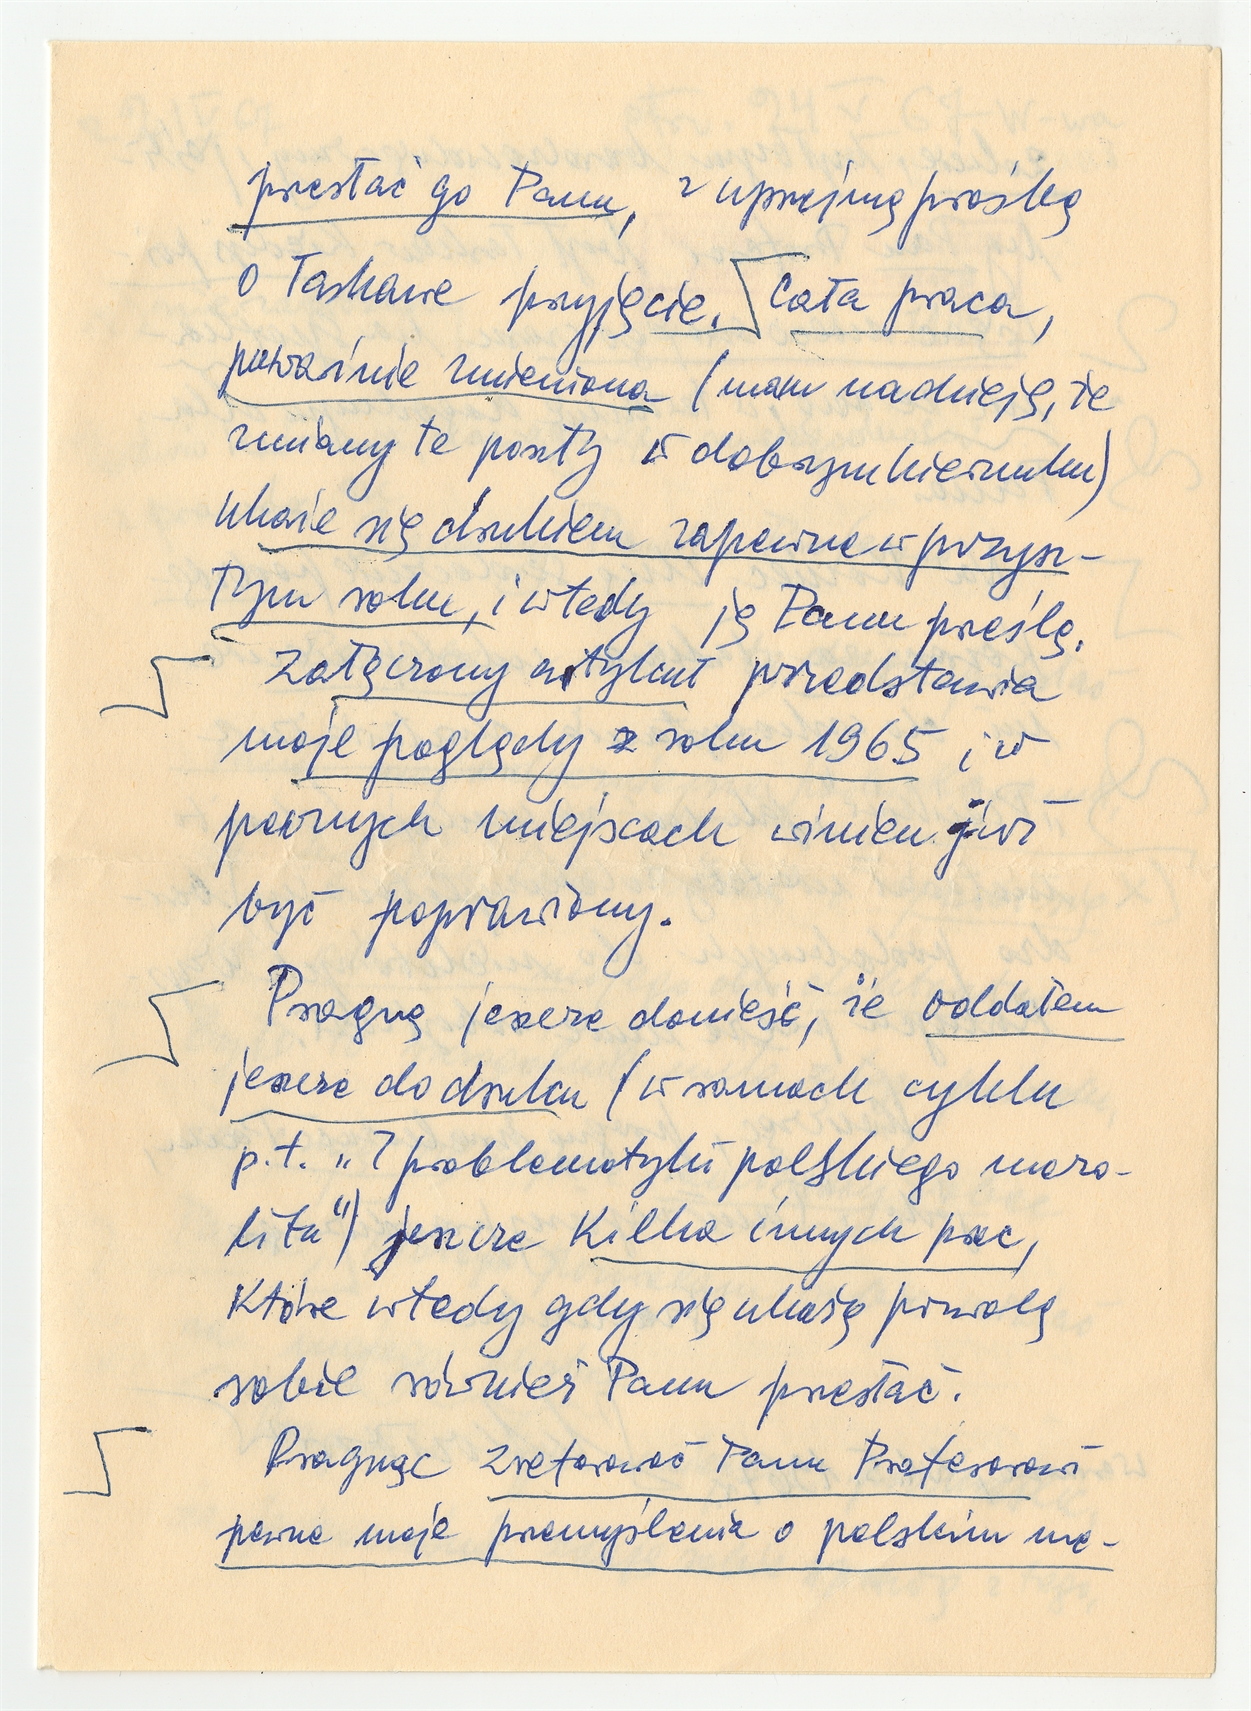 przesłać go Panu, z uprzejmą prośbą
o łaskawe przyjęcie. Cała praca,
poważnie zmieniona (mam nadzieję, że
zmiany te poszły w dobrym kierunku)
ukaże się drukiem zapewne w przysz-
łym roku, i wtedy ją Panu prześlę.
Załączony artykuł przedstawia
moje poglądy z roku 1965 i w
pewnych miejscach winien już
być poprawiony.
Pragnę jeszcze donieść, że oddałem
jeszcze do druku (w ramach cyklu
p.t. „Z problematyki polskiego mora-
litu") jeszcze kilka innych prac,
które wtedy gdy się ukażą pozwolę
sobie również Panu przesłać.
Pragnąc zreferować Panu Profesorowi
pewne moje przemyślenia o polskim mo-